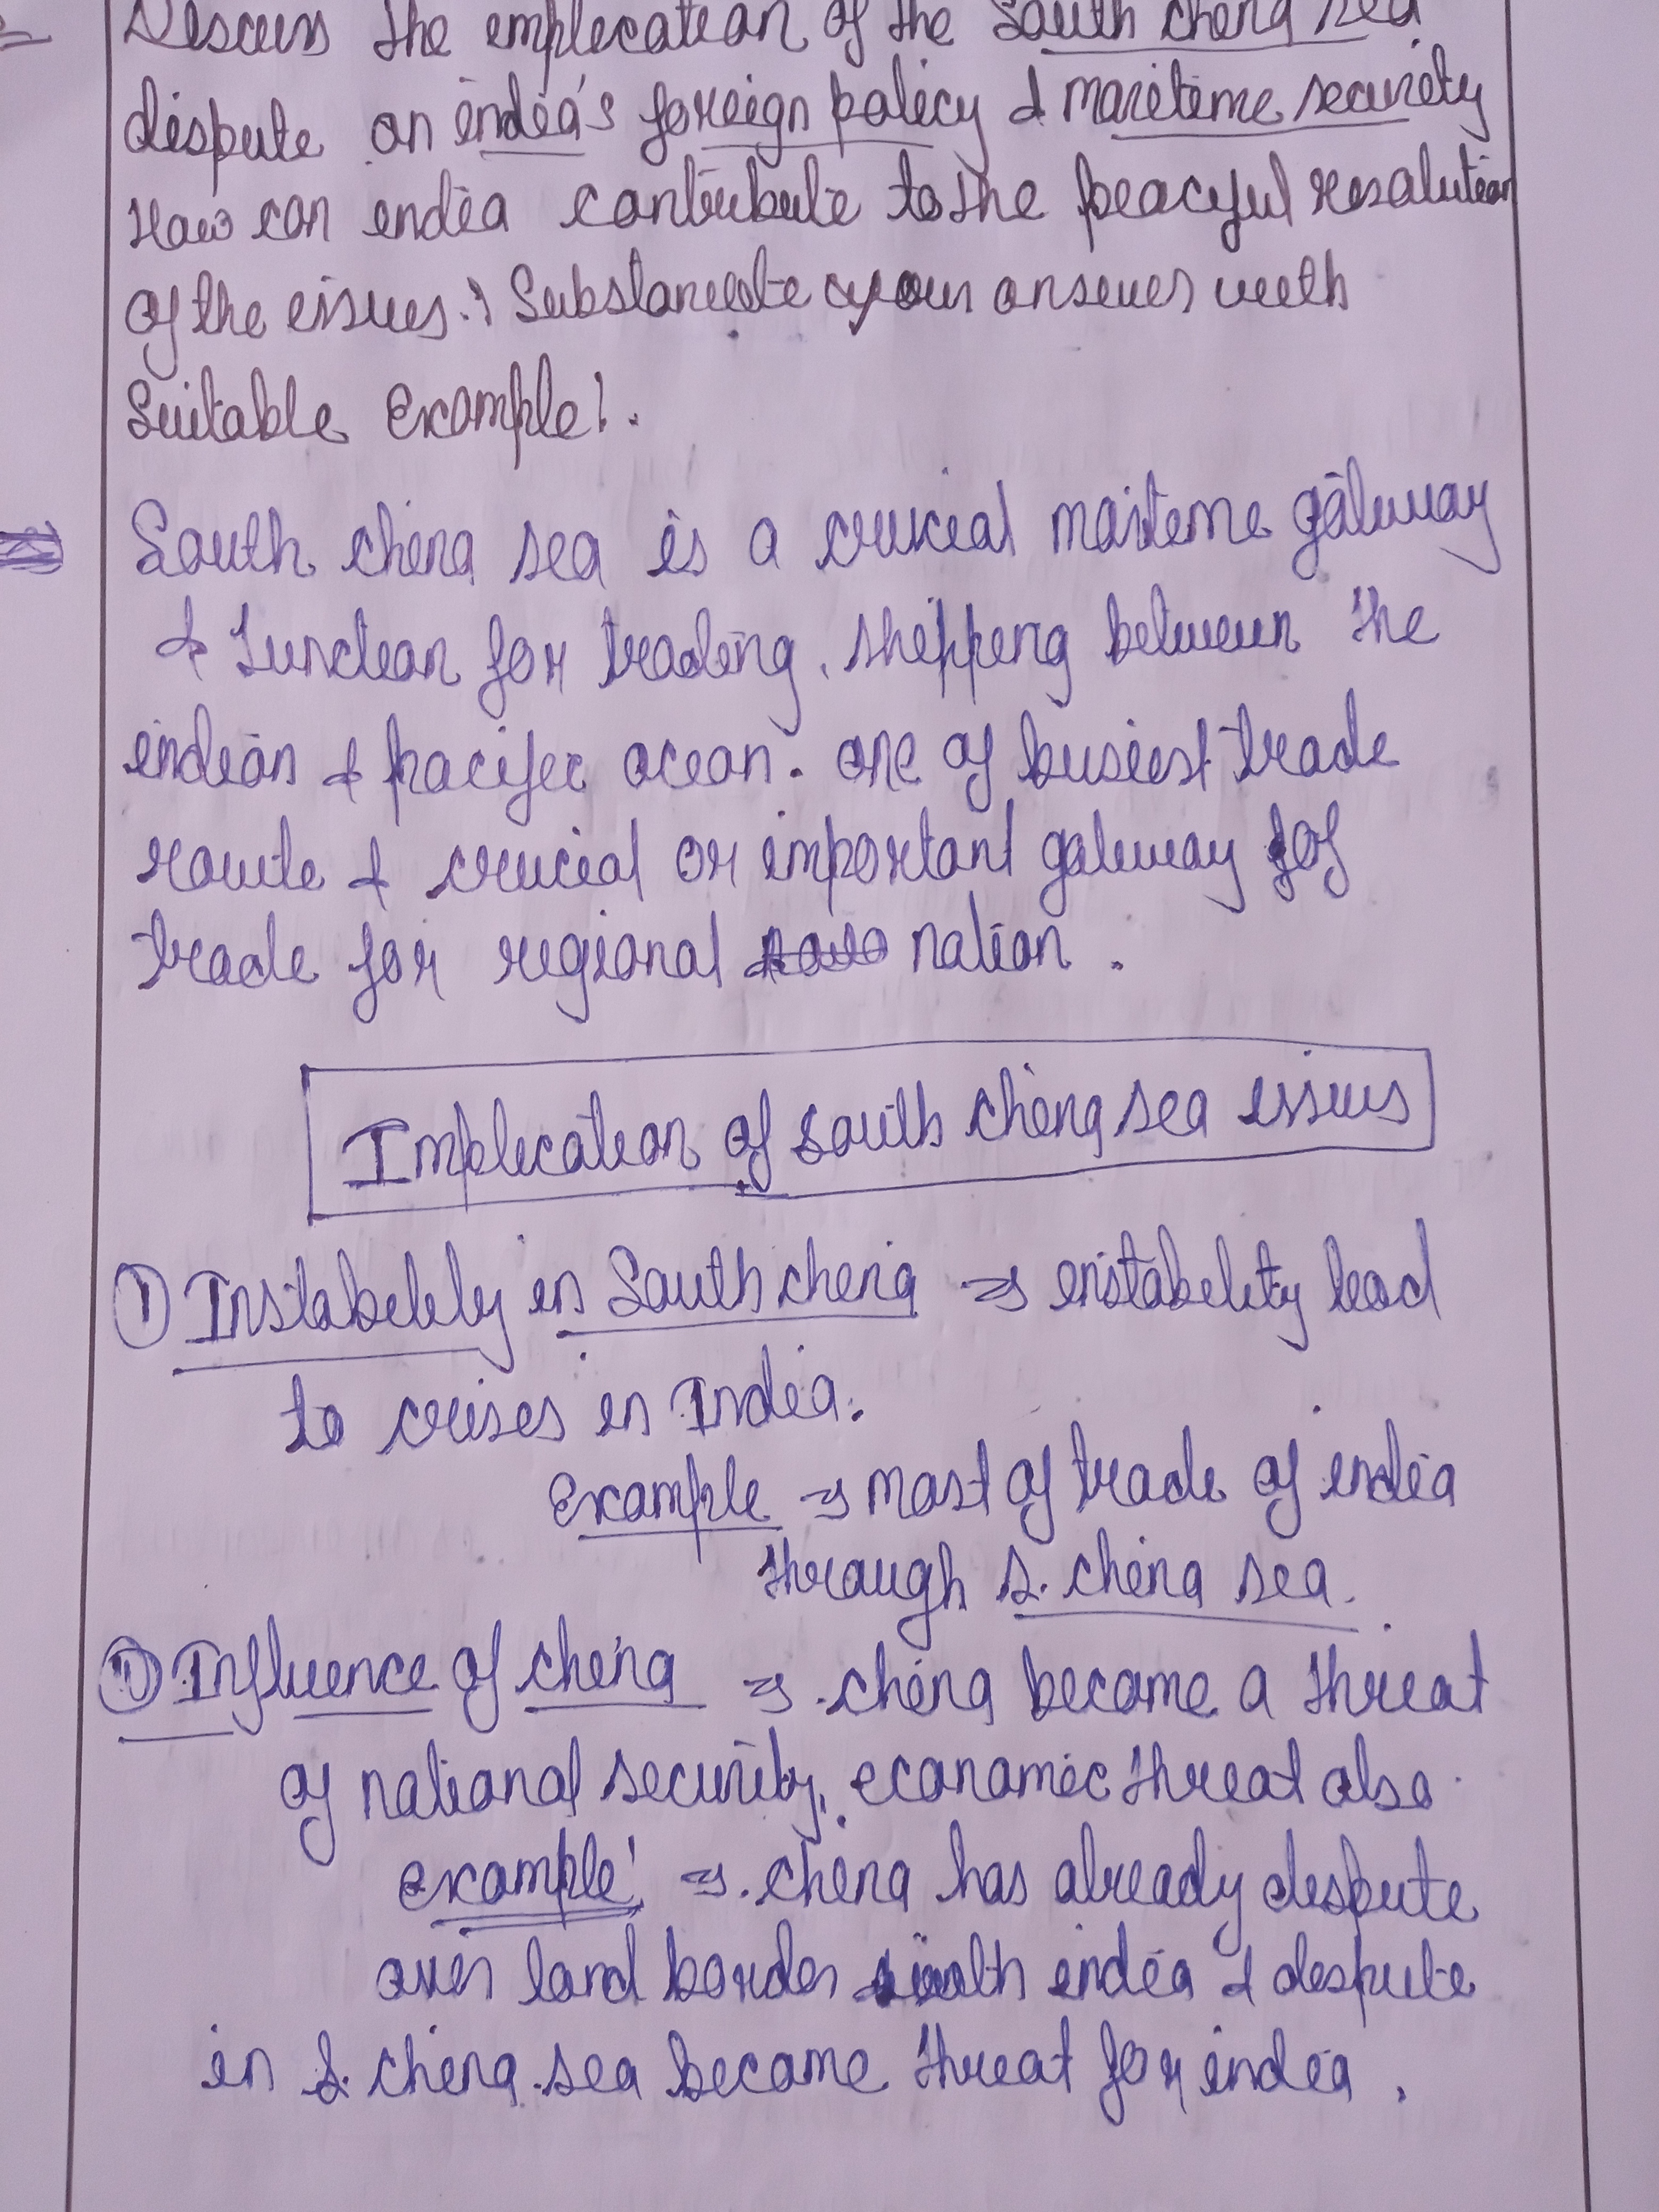 Discuss the emplecation of the South china sea
dispute on india's foreign policy & maritime security
How can india contribute to the peaceful resolution
of the issues.? Substanciate your answer with
Suitable Example!.
South china sea is a crucial mariteme gateway
& Junction for trading, shipping between the
indian & pacific ocean. one of busiest trade
route & crucial or important gateway for
trade for regional nation.
Implecation of south china sea issues
① Instability in South china ⇒ instability lead
to crises in India.
Example ⇒ most of trade of india
through s. china sea.
② Influence of china ⇒ china become a threat
of national security, economic threat also
example! ⇒ china has already dispute
over land border with india & dispute
in s. china sea become threat for india.